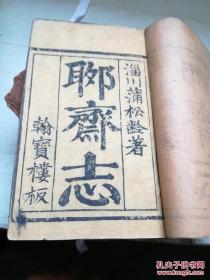 淄川蒲松齡著
聊齋志
翰寶樓板